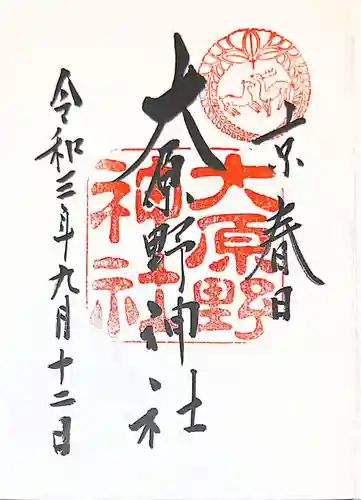 京春日
大原野神社
令和三年九月十二日
大原野
神社